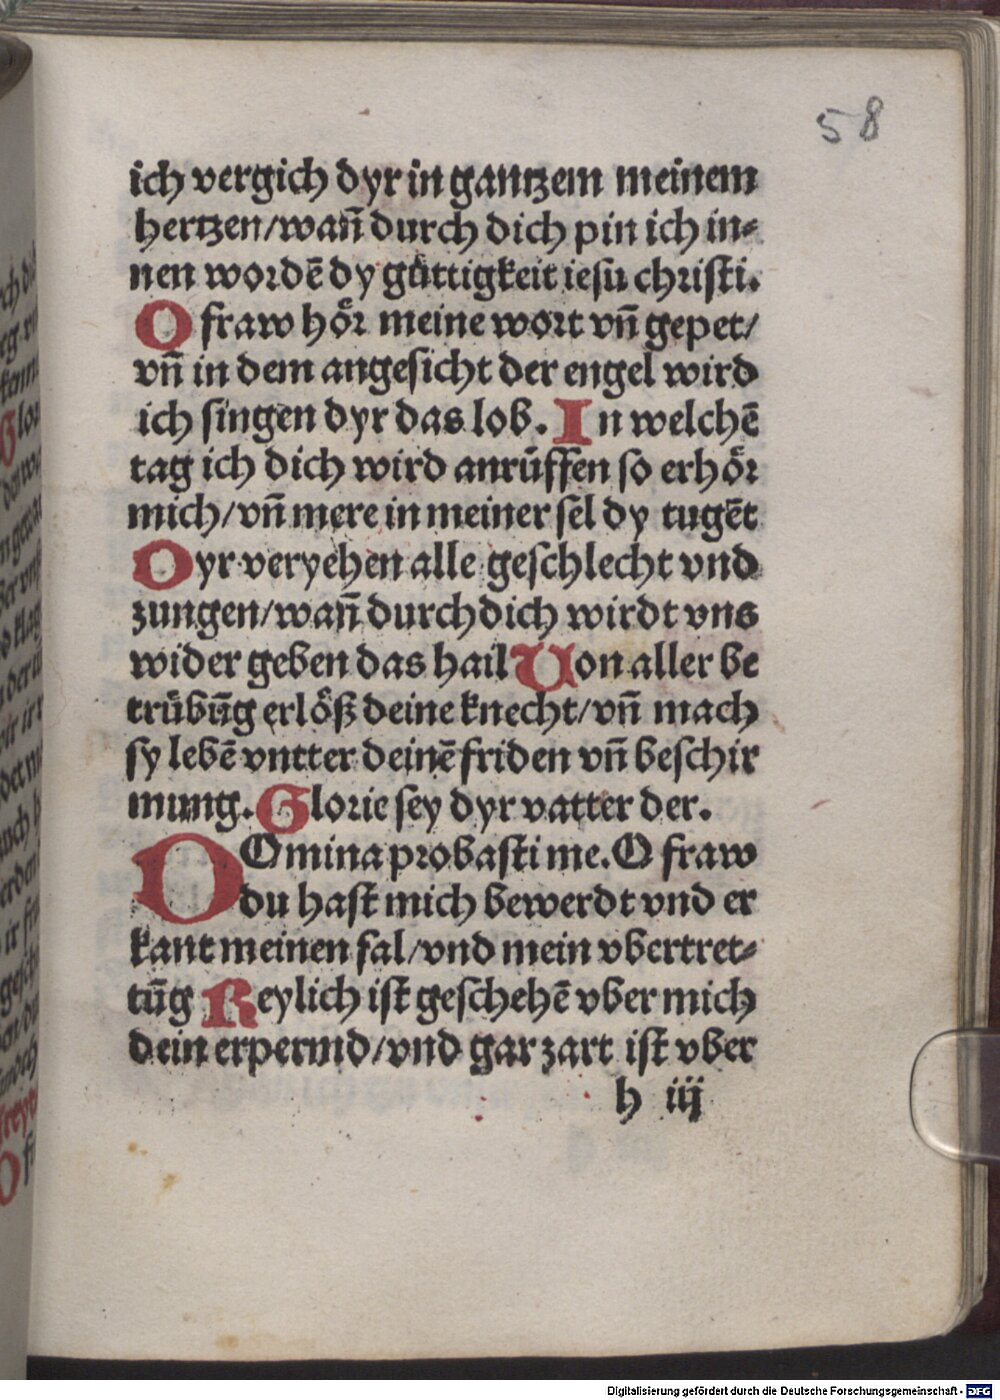 58
ich vergich dyr in gantzem meinem
hertzen/wañ durch dich pin ich in-
nen wordē dy güttigkeit iesu christi.
O fraw hör meine wort vñ gepet/
vñ in dem angesicht der engel wird
ich singen dyr das lob. In welchē
tag ich dich wird anrüffen so erhör
mich/vñ mere in meiner sel dy tugēt
Dyr veryehen alle geschlecht vnd
zungen/wañ durch dich wirdt vns
wider geben das hail Von aller be
trübūg erlöß deine knecht/vñ mach
sy lebē vntter deinē friden vñ beschir
mung. Glorie sey dyr vatter der.
DOmina probasti me. O fraw
du hast mich bewerdt vnd er
kant meinen fal/vnd mein vbertret-
tūg Reylich ist geschehē vber mich
dein erpermd/vnd gar zart ist vber
h iij
Digitalisierung gefördert durch die Deutsche Forschungsgemeinschaft - DFG